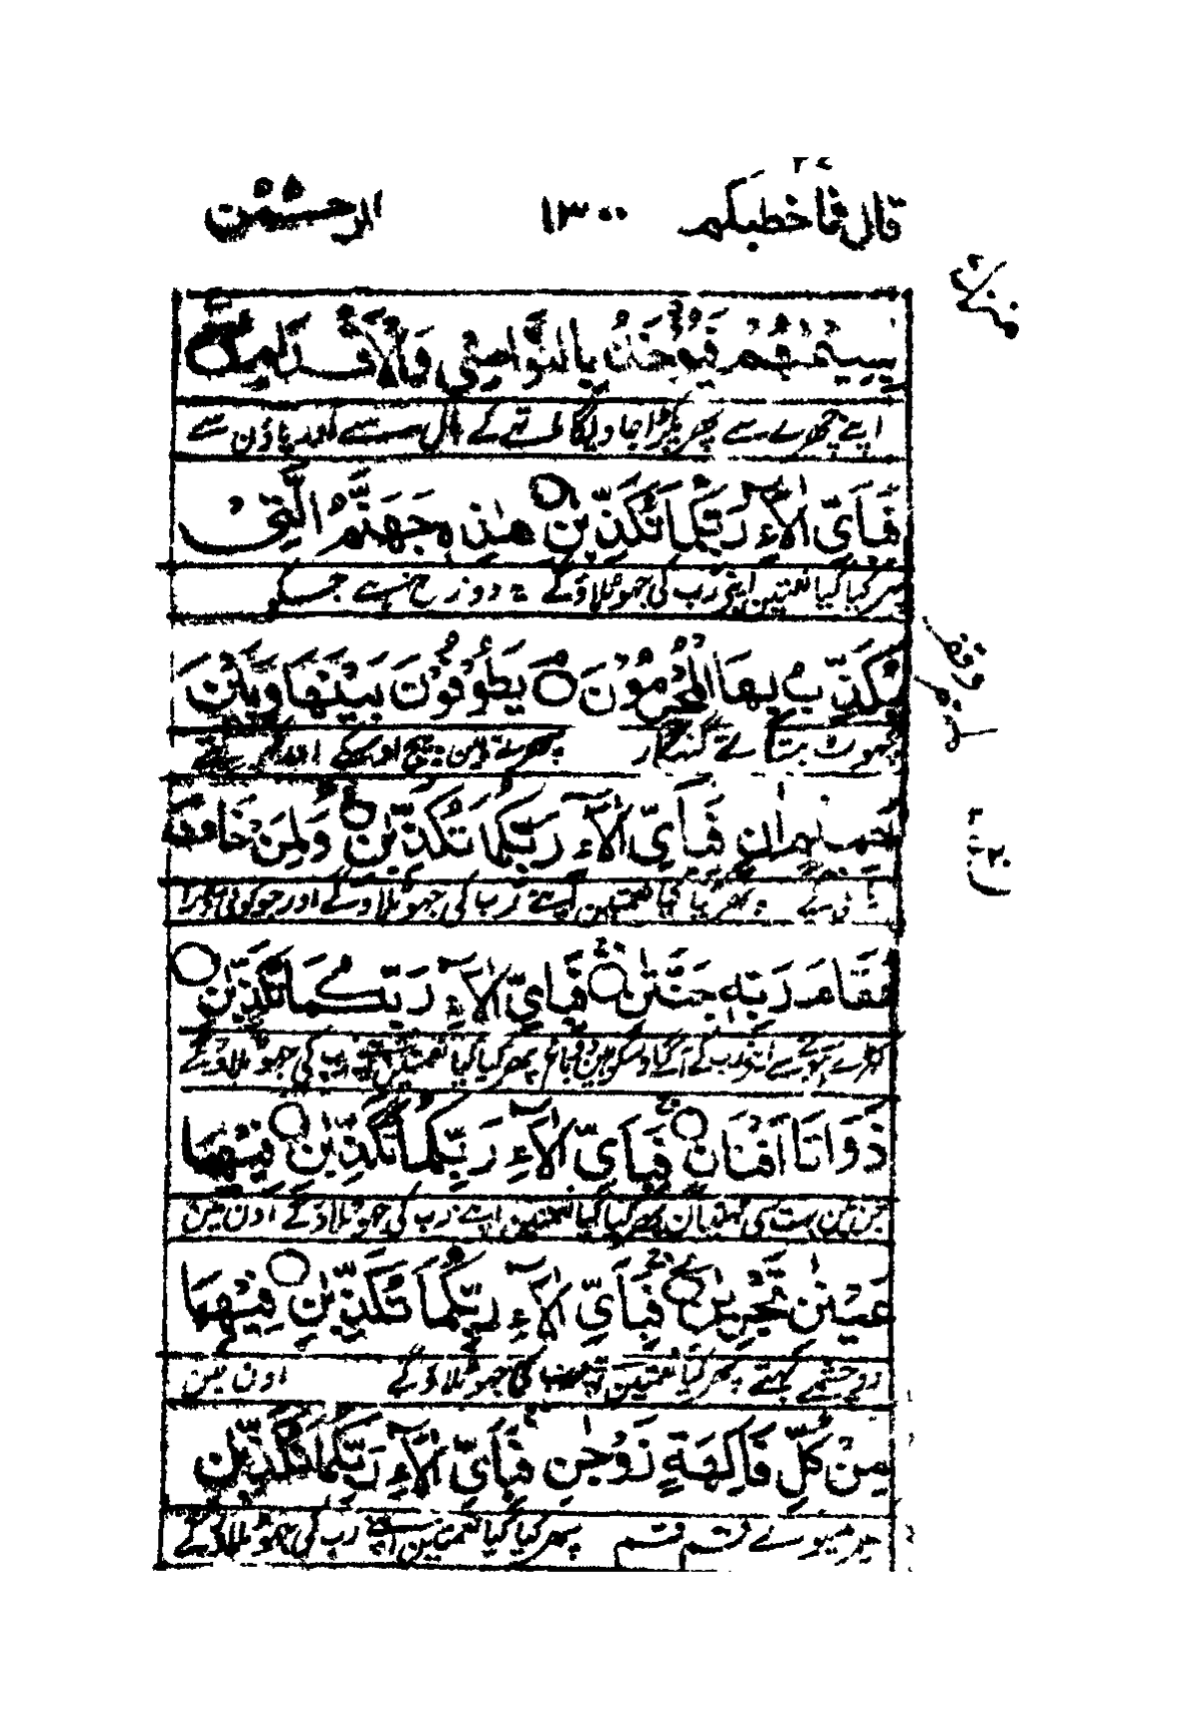 ٢٧
قال فما خطبکم ١٣٠٠ الرحمٰن
بِسِيْمٰهُمْ فَيُؤْخَذُ بِالنَّوَاصِيْ وَالْاَقْدَامِ
اپنے چہرے سے پھر پکڑا جاویگا ماتہے کے بال سے اور پاؤن سے
فَبِاَيِّ اٰلَآءِ رَبِّكُمَا تُكَذِّبٰنِ هٰذِهٖ جَهَنَّمُ الَّتِيْ
پھر کیا کیا نعمتین اپنی رب کی جھوٹلاؤگے یہ دوزخ ہے جسکو
يُكَذِّبُ بِهَا الْمُجْرِمُوْنَ يَطُوْفُوْنَ بَيْنَهَا وَبَيْنَ
جھوٹ بتاتے گنہگار پھرتے ہین بیچ اوسکے اور
حَمِيْمٍ اٰنٍ فَبِاَيِّ اٰلَآءِ رَبِّكُمَا تُكَذِّبٰنِ وَلِمَنْ خَافَ
پھر کیا کیا نعمتین اپنے رب کی جھوٹلاوگے اور جو کوئی ڈرا
مَقَامَ رَبِّهٖ جَنَّتٰنِ فَبِاَيِّ اٰلَآءِ رَبِّكُمَا تُكَذِّبٰنِ
کھڑے ہونے سے اپنے رب کے آگے اوسکو ہین دو باغ پھر کیا کیا نعمتین اپنے رب کی جھوٹلاوگے
ذَوَاتَا اَفْنَانٍ فَبِاَيِّ اٰلَآءِ رَبِّكُمَا تُكَذِّبٰنِ فِيْهِمَا
جن مین بہت سی ٹہنیان پھر کیا کیا نعمتین اپنے رب کی جھوٹلاؤگے اون مین
عَيْنٰنِ تَجْرِيٰنِ فَبِاَيِّ اٰلَآءِ رَبِّكُمَا تُكَذِّبٰنِ فِيْهِمَا
دو چشمے بہتے پھر کیا نعمتین اپنے رب کی جھوٹلاؤگے اون مین
مِنْ كُلِّ فَاكِهَةٍ زَوْجٰنِ فَبِاَيِّ اٰلَآءِ رَبِّكُمَا تُكَذِّبٰنِ
ہر میوے قسم قسم پھر کیا کیا نعمتین اپنے رب کی جھوٹلاؤگے